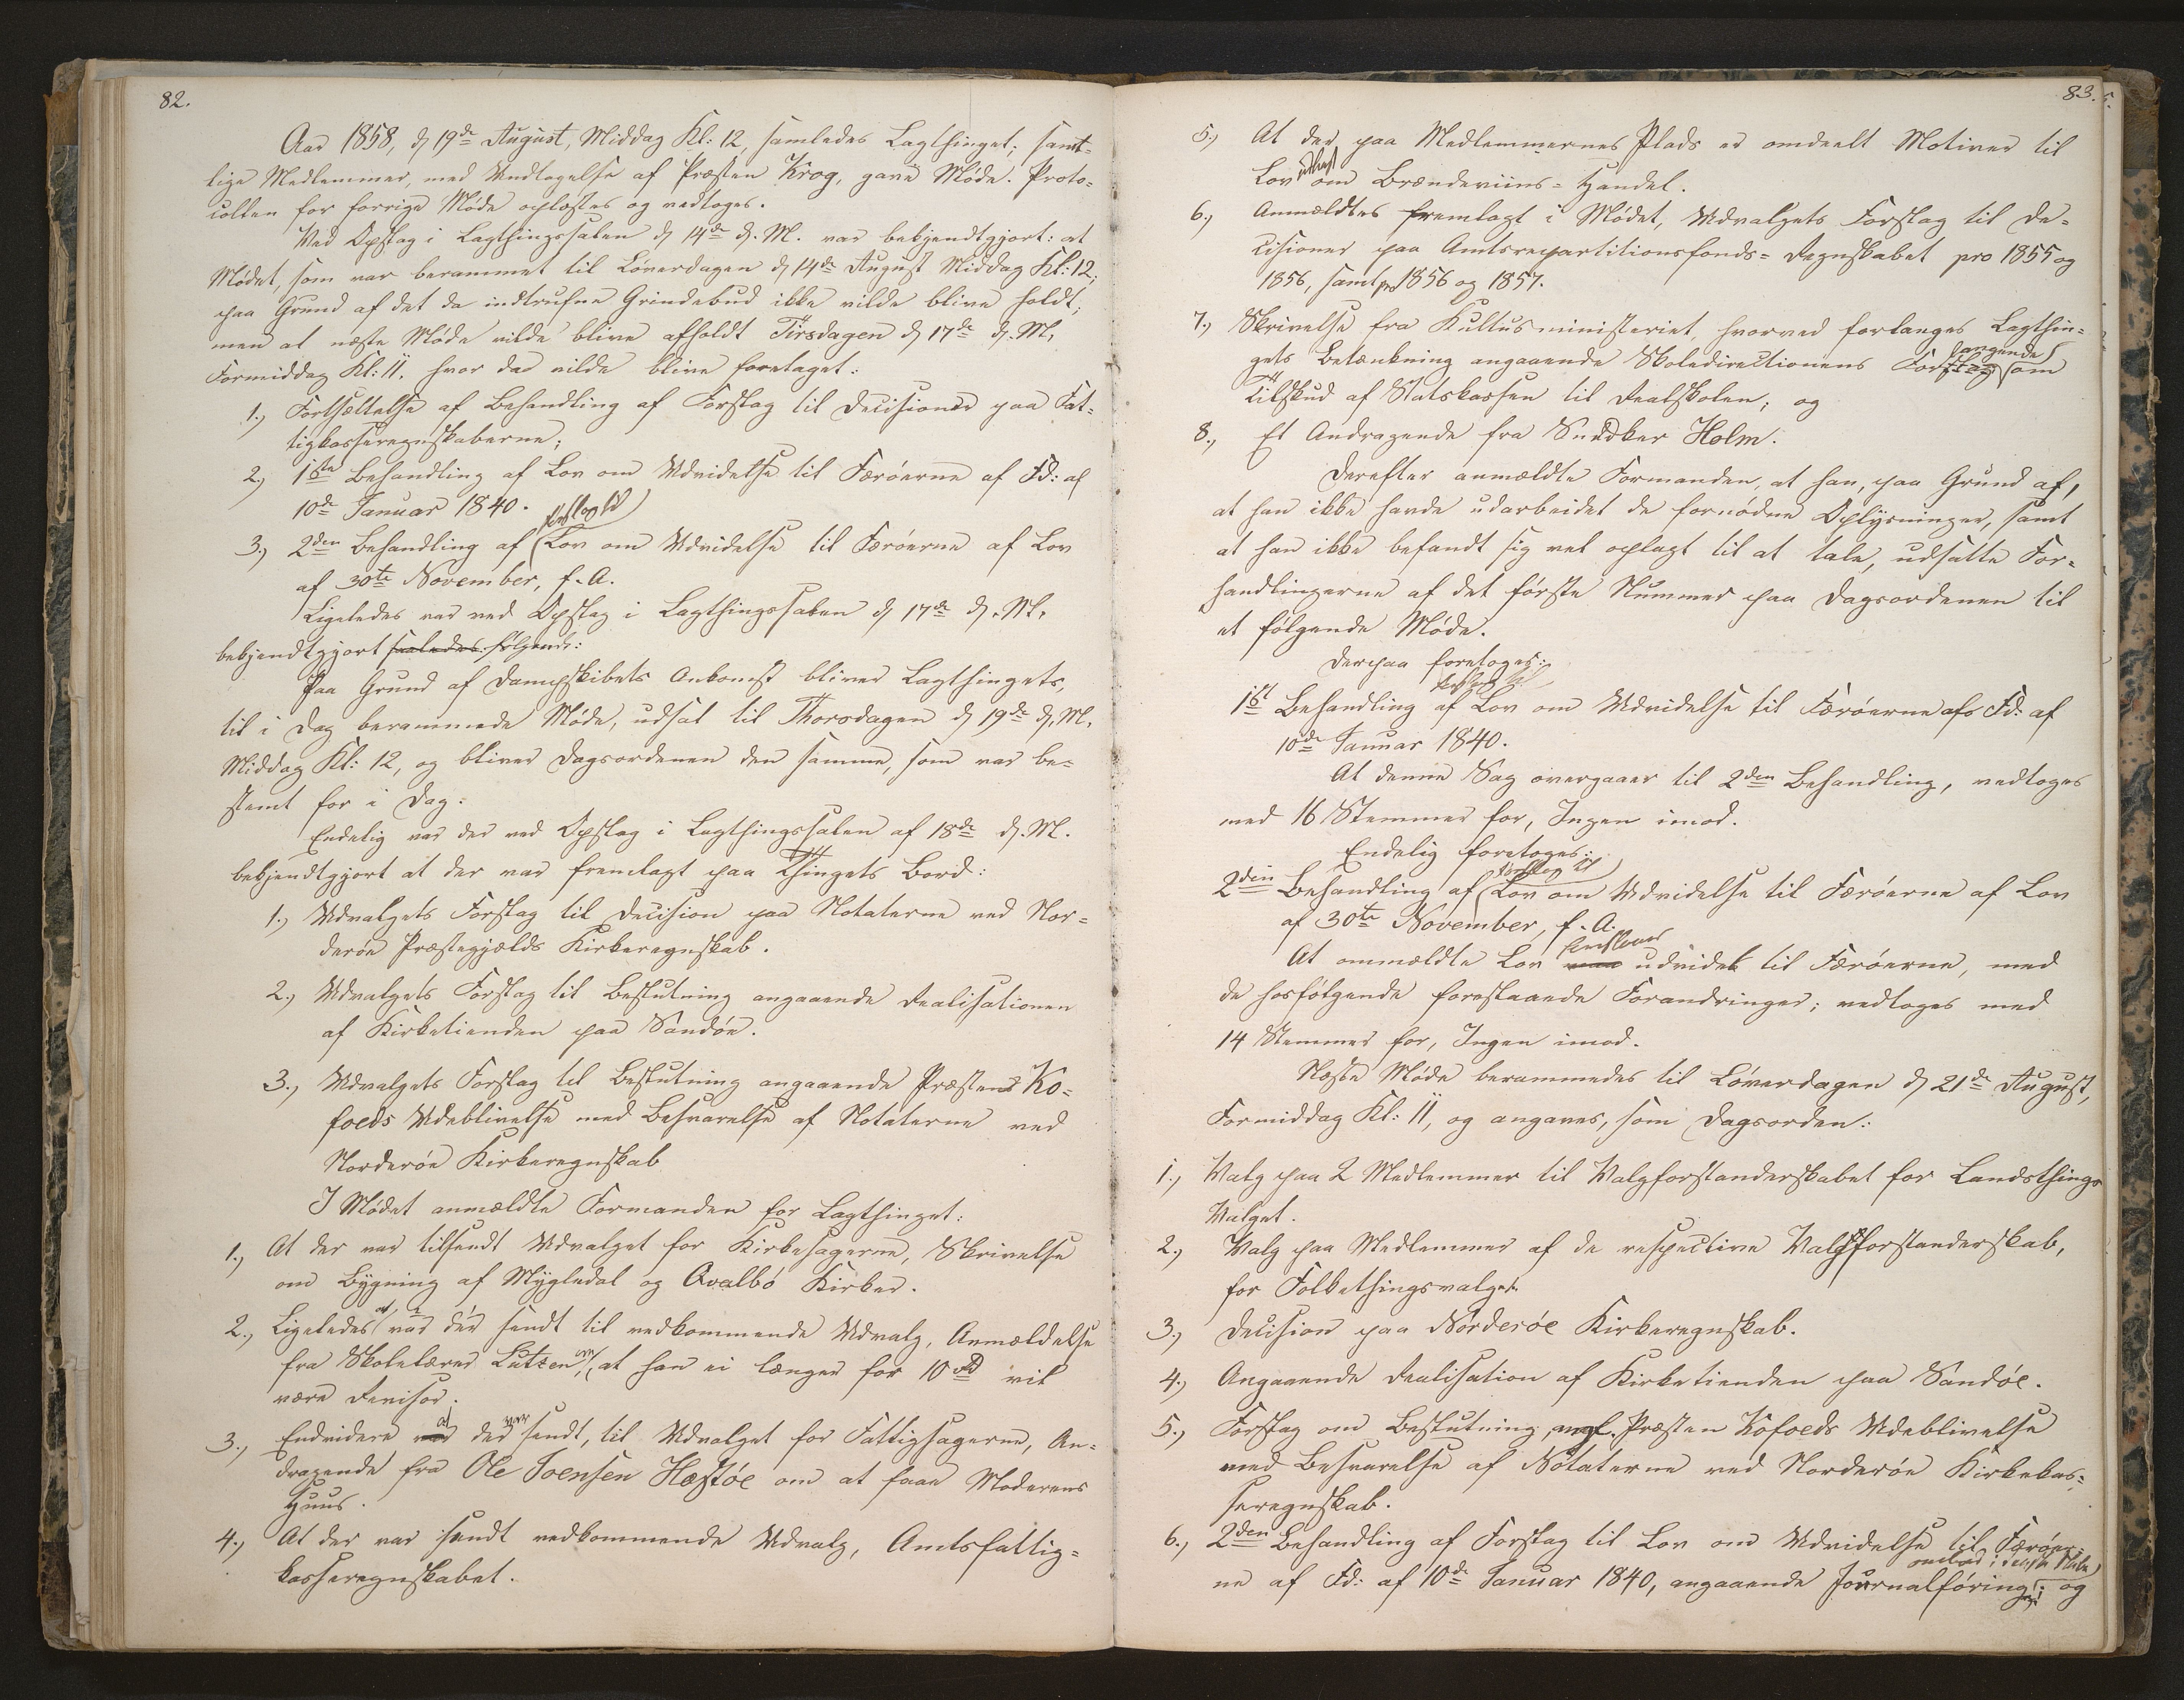 82.
Aar 1858, d 19de August, Middag Kl: 12, samledes Lagthinget; samt-
lige Medlemmer, med Undtagelse af Præsten Krog, gave Møde. Proto-
collen for forrige Møde oplæstes og vedtoges.
Ved Opslag i Lagthingssalen d 14de d. M. var bekjendtgjort: at
Mødet, som var berammet til Løverdagen d 14de August Middag Kl: 12,
paa Grund af det da indtrufne Grindebud ikke vilde blive holdt;
men at næste Møde vilde blive afholdt Tirsdagen d 17de d. M.
Formiddag Kl: 11. hvor da vilde blive foretaget:
1., Fortsættelse af Behandling af Forslag til Decisioner paa Fat-
tigkasseregnskaberne;
2., 1ste Behandling af Lov om Udvidelse til Færøerne af Fd: af
10de Januar 1840.
3., 2den Behandling af Forslag til Lov om Udvidelse til Færøerne af Lov
af 30te November, f. A.
Ligeledes var ved Opslag i Lagthingssalen d 17de d. M.
bekjendtgjort saaledes følgende:
Paa Grund af Dampskibets Ankomst bliver Lagthingets,
til i Dag berammede Møde, udsat til Thorsdagen d 19de d. M.
Middag Kl: 12, og bliver Dagsordenen den samme, som var be-
stemt for i Dag.
Endelig var der ved Opslag i Lagthingssalen af 18de d. M.
bekjendtgjort at der var fremlagt paa Thingets Bord:
1., Udvalgets Forslag til Decision paa Notaterne ved Nor-
derøe Præstegjælds Kirkeregnskab.
2., Udvalgets Forslag til Beslutning angaaende Realisationen
af Kirketienden paa Sandøe.
3., Udvalgets Forslag til Beslutning angaaende Præsten Ko-
foeds Udeblivelse med Besvarelse af Notaterne ved
Norderøe Kirkeregnskab
I Mødet anmeldte Formanden for Lagthinget:
1., At der var tilsendt Udvalget for Kirkesagerne, Skrivelse
om Bygning af Mygledal og Qvalbø Kirker.
2., Ligeledes at der var sendt til vedkommende Udvalg, Anmeldelse
fra Skolelærer Lützen, om at han ei længer for 10 Rd vil
være Revisor.
3., Endvidere at der var sendt, til Udvalget for Fattigsagerne, An-
dragende fra Ole Joensen Hæstøe om at faae Moderens
Huus.
4., At der var sendt vedkommende Udvalg, Amtsfattig-
kasseregnskabet.
83.
5., At der paa Medlemmernes Plads er omdeelt Motiver til
Lov udkast om Brændeviins-Handel.
6., Anmeldtes fremlagt i Mødet, Udvalgets Forslag til De-
cisioner paa Amtsrepartitionsfonds-Regnskabet pro 1855 og
1856, samt pro 1856 og 1857.
7., Skrivelse fra Kultusministeriet, hvorved forlanges Lagthin-
gets Betænkning angaaende Skoledirectionens Forslag om
Tilskud af Statskassen til Realskolen; og
8., Et Andragende fra Snedker Holm.
Derefter anmeldte Formanden, at han, paa Grund af,
at han ikke havde udarbeidet de fornødne Oplysninger, samt
at han ikke befandt sig vel oplagt til at tale, udsatte For-
handlingerne af det første Nummer paa Dagsordenen til
et følgende Møde.
Derpaa foretoges:
1ste Behandling af Forslag til Lov om Udvidelse til Færøerne af Fd: af
10de Januar 1840.
At denne Sag overgaaer til 2den Behandling, vedtoges
med 16 Stemmer for, Ingen imod.
Endelig foretoges:
2den Behandling af Forslag til Lov om Udvidelse til Færøerne af Lov
af 30te November, f. A.
At ommeldte Lov udvides til Færøerne, med
de hosfølgende foreslaaede Forandringer; vedtoges med
14 Stemmer for, Ingen imod.
Næste Møde berammedes til Løverdagen d 21de August,
Formiddag Kl: 11, og angaves, som Dagsorden:
1., Valg paa 2 Medlemmer til Valgforstanderskabet for Landsthings
Valget.
2., Valg paa Medlemmer af de respective Valgforstanderskab,
for Folkethingsvalget.
3., Decision paa Norderøe Kirkeregnskab.
4., Angaaende Realisation af Kirketienden paa Sandøe.
5., Forslag om Beslutning, angl. Præsten Kofoeds Udeblivelse
med Besvarelse af Notaterne ved Norderøe Kirkekas-
seregnskab.
6., 2den Behandling af Forslag til Lov om Udvidelse til Færøer-
ne af Fd: af 10de Januar 1840, angaaende Journalføring; og